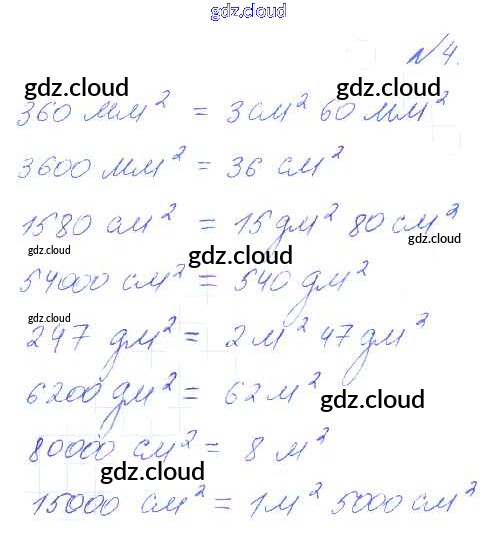 gdz.cloud
№4.
gdz.cloud gdz.cloud
360 мм² = 3 см² 60 мм²
3600 мм² = 36 см²
1580 см² = 15 дм² 80 см²
gdz.cloud gdz.cloud gdz.cloud
54000 см² = 540 дм²
gdz.cloud
247 дм² = 2 м² 47 дм²
6200 дм² = 62 м²
gdz.cloud
80000 см² = 8 м²
gdz.cloud
15000 см² = 1 м² 5000 см²